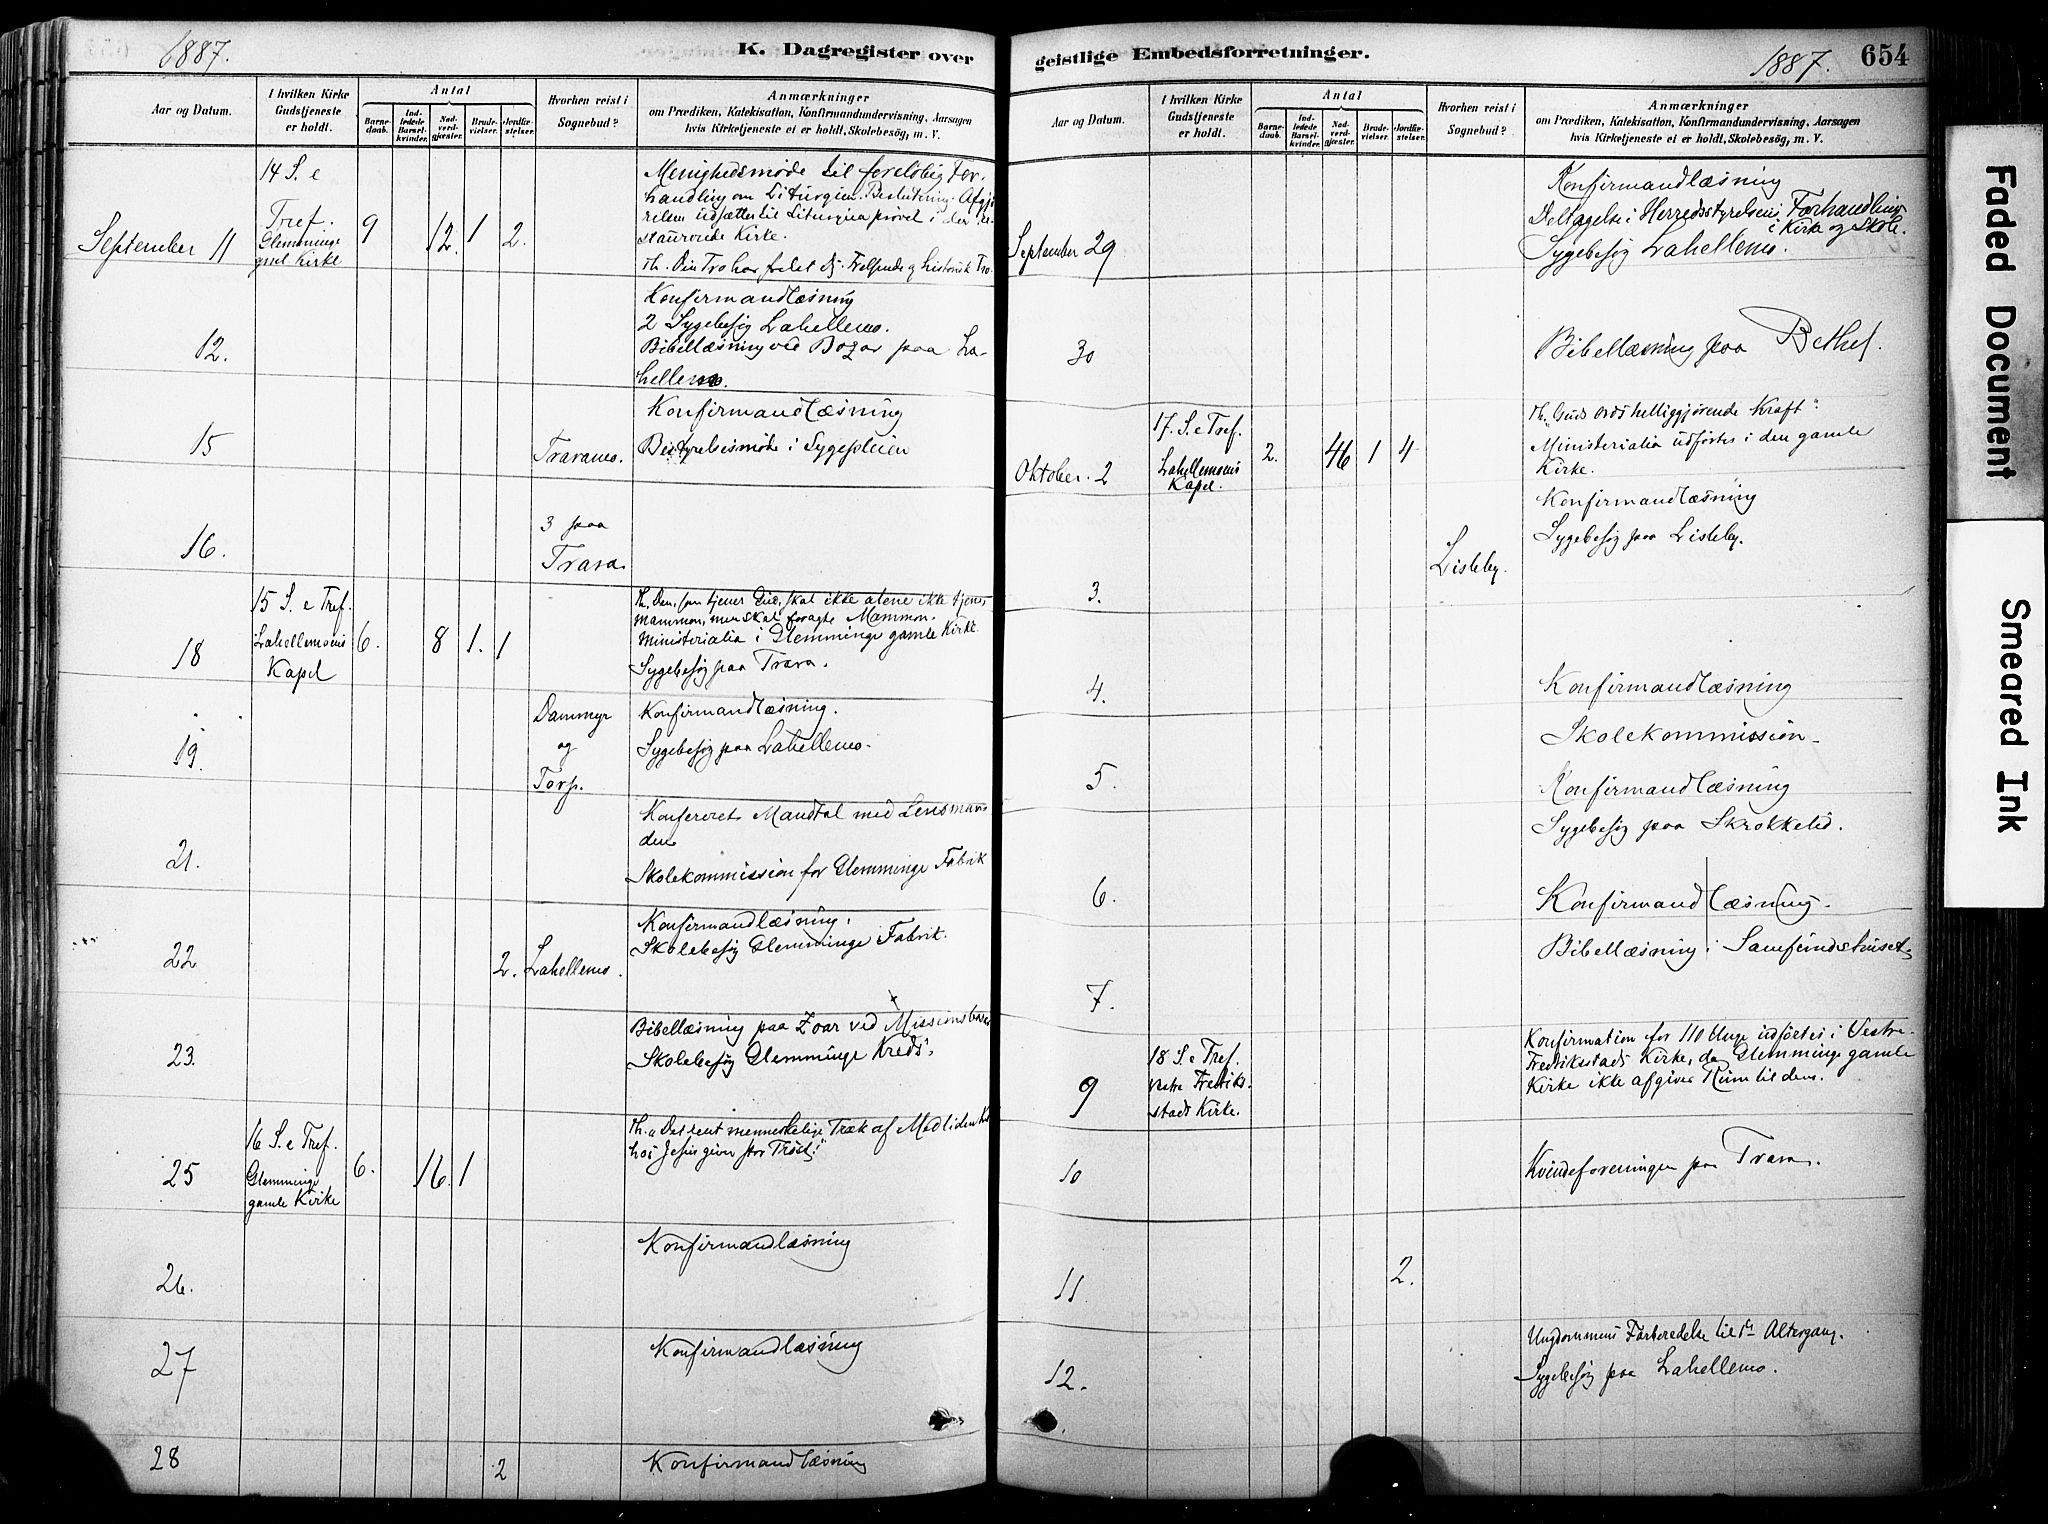 1887.
K. Dagregister over
Aar og Datum.
I hvilken Kirke
Gudstjeneste
er holdt.
Antal
Barne-
daab.
Ind-
ledede
Barsel-
kvinder.
Nad-
verd-
gjæster.
Brude-
vielser.
Jordfæ-
stelser.
Hvorhen reist i
Sognebud?
Anmærkninger
om Prædiken, Katekisation, Konfirmandundervisning, Aarsagen
hvis Kirketjeneste ei er holdt, Skolebesög, m. V.
September 11
14 S. e
Tref.
Glemminge
gml Kirke
9 12. 1 2.
Menighedsmøde til foreløbig For-
handling om Liturgien. Beslutning: Afgjø-
relsen udsættes til Liturgien prøvet i den re-
staurerede Kirke.
Th. Din Tro har frelst dig. Frelsende og historisk Tro.
12.
Konfirmandlæsning
2 Sygebesøg Lahellemo.
Bibellæsning ved Bazar paa La-
hellemo.
15
Travamo.
Konfirmandlæsning
Bestyrelsesmøde i Sygepleien
16.
3 paa
Trara.
18
15 S. e Tref.
Lahellemoens
Kapel
6. 8 1. 1
Th. Den, som tjener Gud, skal ikke alene ikke tjene
mammon, men skal foragte Mammon.
Ministerialia i Glemminge gamle Kirke.
Sygebesøg paa Trara.
19.
Dammyr
og
Torp.
Konfirmandlæsning.
Sygebesøg paa Lahellemo.
21.
Konfereret Mandtal med Lensman-
den
Skolekommission for Glemminge Fabrik
22
2. Lahellemo.
Konfirmandlæsning.
Skolebesøg Glemminge Fabrik.
23.
Bibellæsning paa Zoar ved Missionsbasar
Skolebesøg Glemminge Kreds.
25
16 S. e Tref.
Glemminge
gamle Kirke
6. 16. 1
Th. "Det rent menneskelige Træk af Medlidenhed
hos Jesus giver stor Trøst."
26.
Konfirmandlæsning
27
Konfirmandlæsning
28
2
Konfirmandlæsning
geistlige Embedsforretninger.
1887.
654
Aar og Datum.
I hvilken Kirke
Gudstjeneste
er holdt.
Antal
Barne-
daab.
Ind-
ledede
Barsel-
kvinder.
Nad-
verd-
gjæster.
Brude-
vielser.
Jordfæ-
stelser.
Hvorhen reist i
Sognebud?
Anmærkninger
om Prædiken, Katekisation, Konfirmandundervisning, Aarsagen
hvis Kirketjeneste ei er holdt, Skolebesög, m. V.
September 29
Konfirmandlæsning
Deltagelse i Herredsstyrelsens Forhandling
i Kirke og Skole.
Sygebesøg Lahellemo.
30
Bibellæsning paa Bethel.
Oktober. 2
17. S. e Tref.
Lahellemoens
Kapel.
2. 46 1 4
Th. "Guds Ords helliggjørende Kraft".
Ministerialia udførtes i den gamle
Kirke.
3.
Lisleby.
Konfirmandlæsning
Sygebesøg paa Lisleby.
4.
Konfirmandlæsning
Skolekommission.
5.
Konfirmandlæsning
Sygebesøg paa Skrokkelid.
6.
Konfirmandlæsning.
Bibellæsning i Samfundshuset
7.
9
18 S. e Tref.
Vestre Fredriks-
stads Kirke.
Konfirmation for 110 Unge udførtes i Vestre
Fredriksstads Kirke, da Glemminge gamle
Kirke ikke afgiver Rum til dem.
10
Kvindeforeningen paa Trara.
11
2.
12.
Ungdommens Forberedelse til 1ste Altergang.
Sygebesøg paa Lahellemo.
Faded Document
Smeared Ink